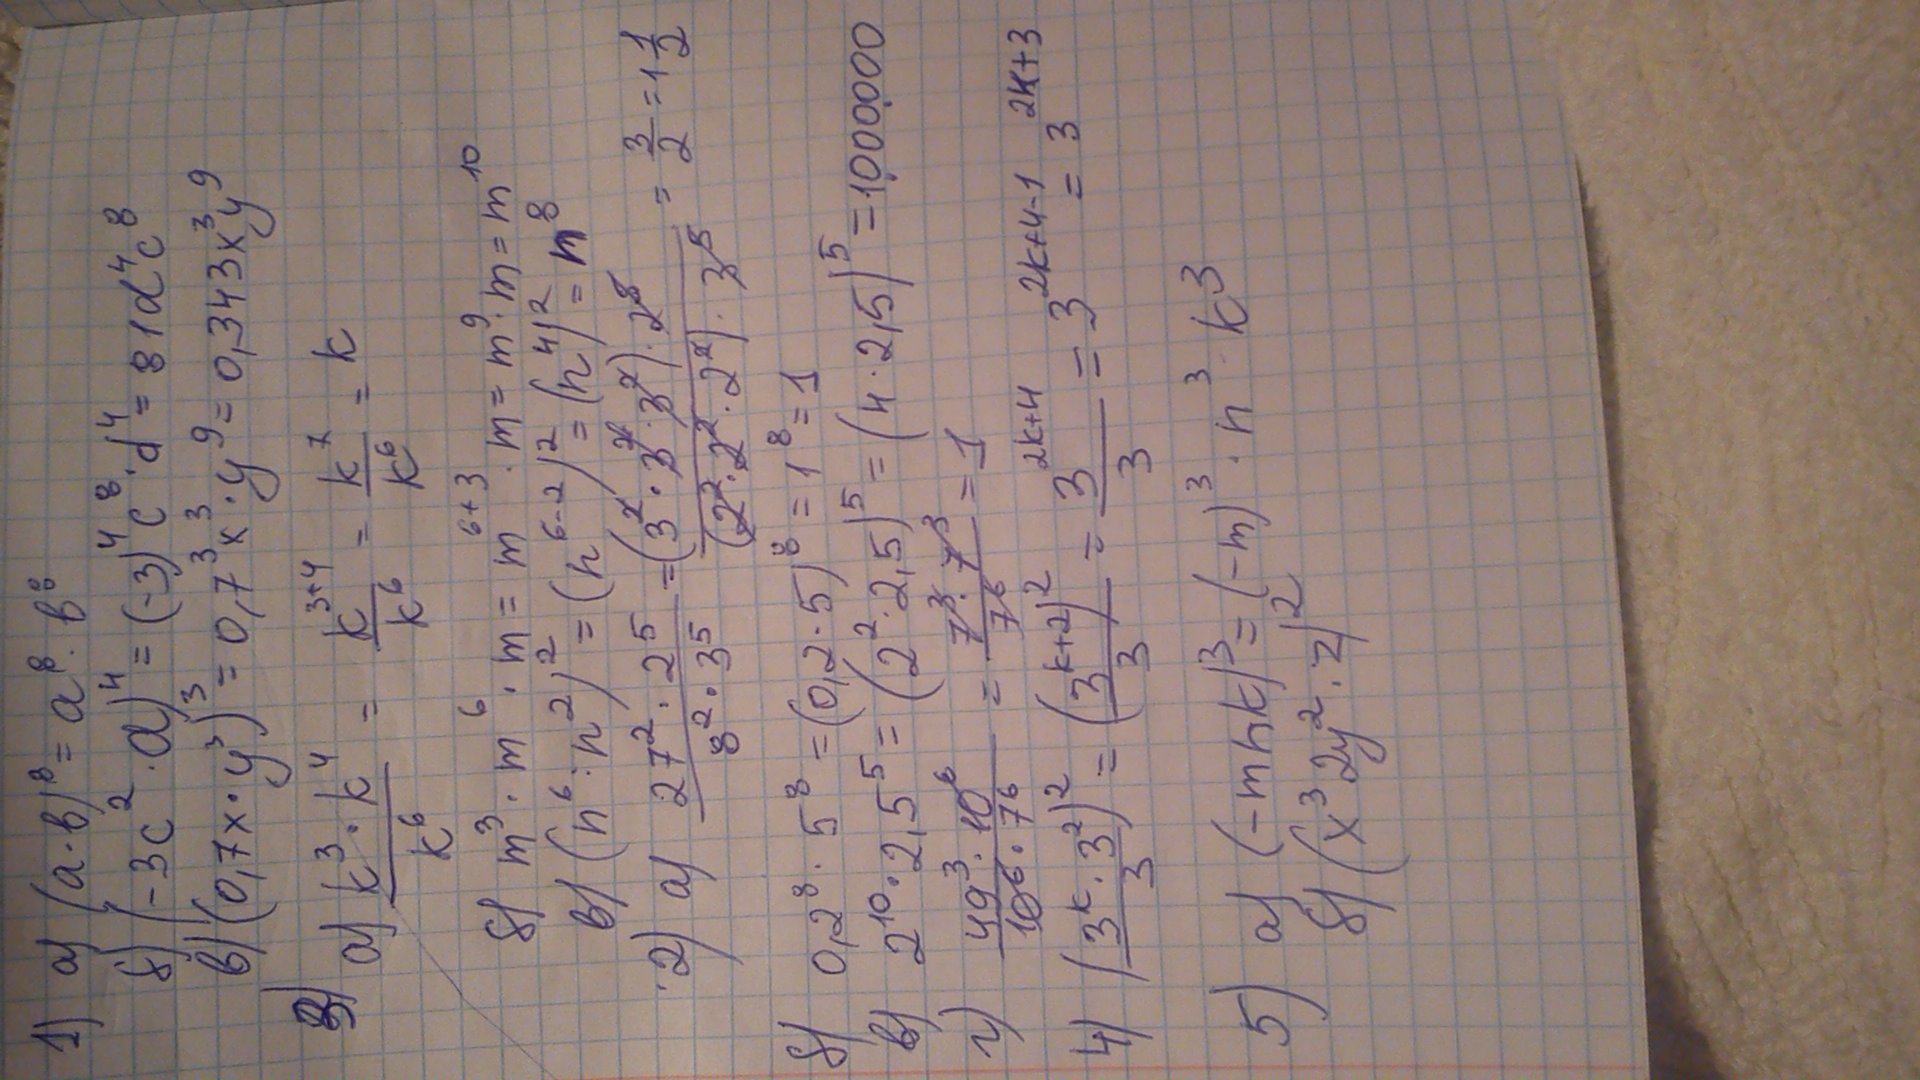 1) а) (a·b)⁸ = a⁸·b⁸
б) (-3c²·d)⁴ = (-3)⁴c⁸·d⁴ = 81d⁴c⁸
в) (0,7x·y³)³ = 0,7³x³·y⁹ = 0,343x³y⁹
3) а) k³·k⁴/k⁶ = k³⁺⁴/k⁶ = k⁷/k⁶ = k
б) m³·m⁶·m = m⁶⁺³·m = m⁹·m = m¹⁰
в) (n⁶:n²)² = (n⁶⁻²)² = (n⁴)² = n⁸
2) а) 27²·2⁵/8²·3⁵ = (3²·3²·3²)·2⁵/(2²·2²·2²)·3⁵ = 3/2 = 1 1/2
б) 0,2⁸·5⁸ = (0,2·5)⁸ = 1⁸ = 1
в) 2¹⁰·2,5⁵ = (2²·2,5)⁵ = (4·2,5)⁵ = 1000000
г) 49³·10⁶/10⁶·7⁶ = 7³·7³/7⁶ = 1
4) (3ᵏ·3²)²/3 = (3ᵏ⁺²)²/3 = 3²ᵏ⁺⁴/3 = 3²ᵏ⁺⁴⁻¹ = 3²ᵏ⁺³
5) а) (-mnk)³ = (-m)³·n³·k³
б) (x³2y²·z)²